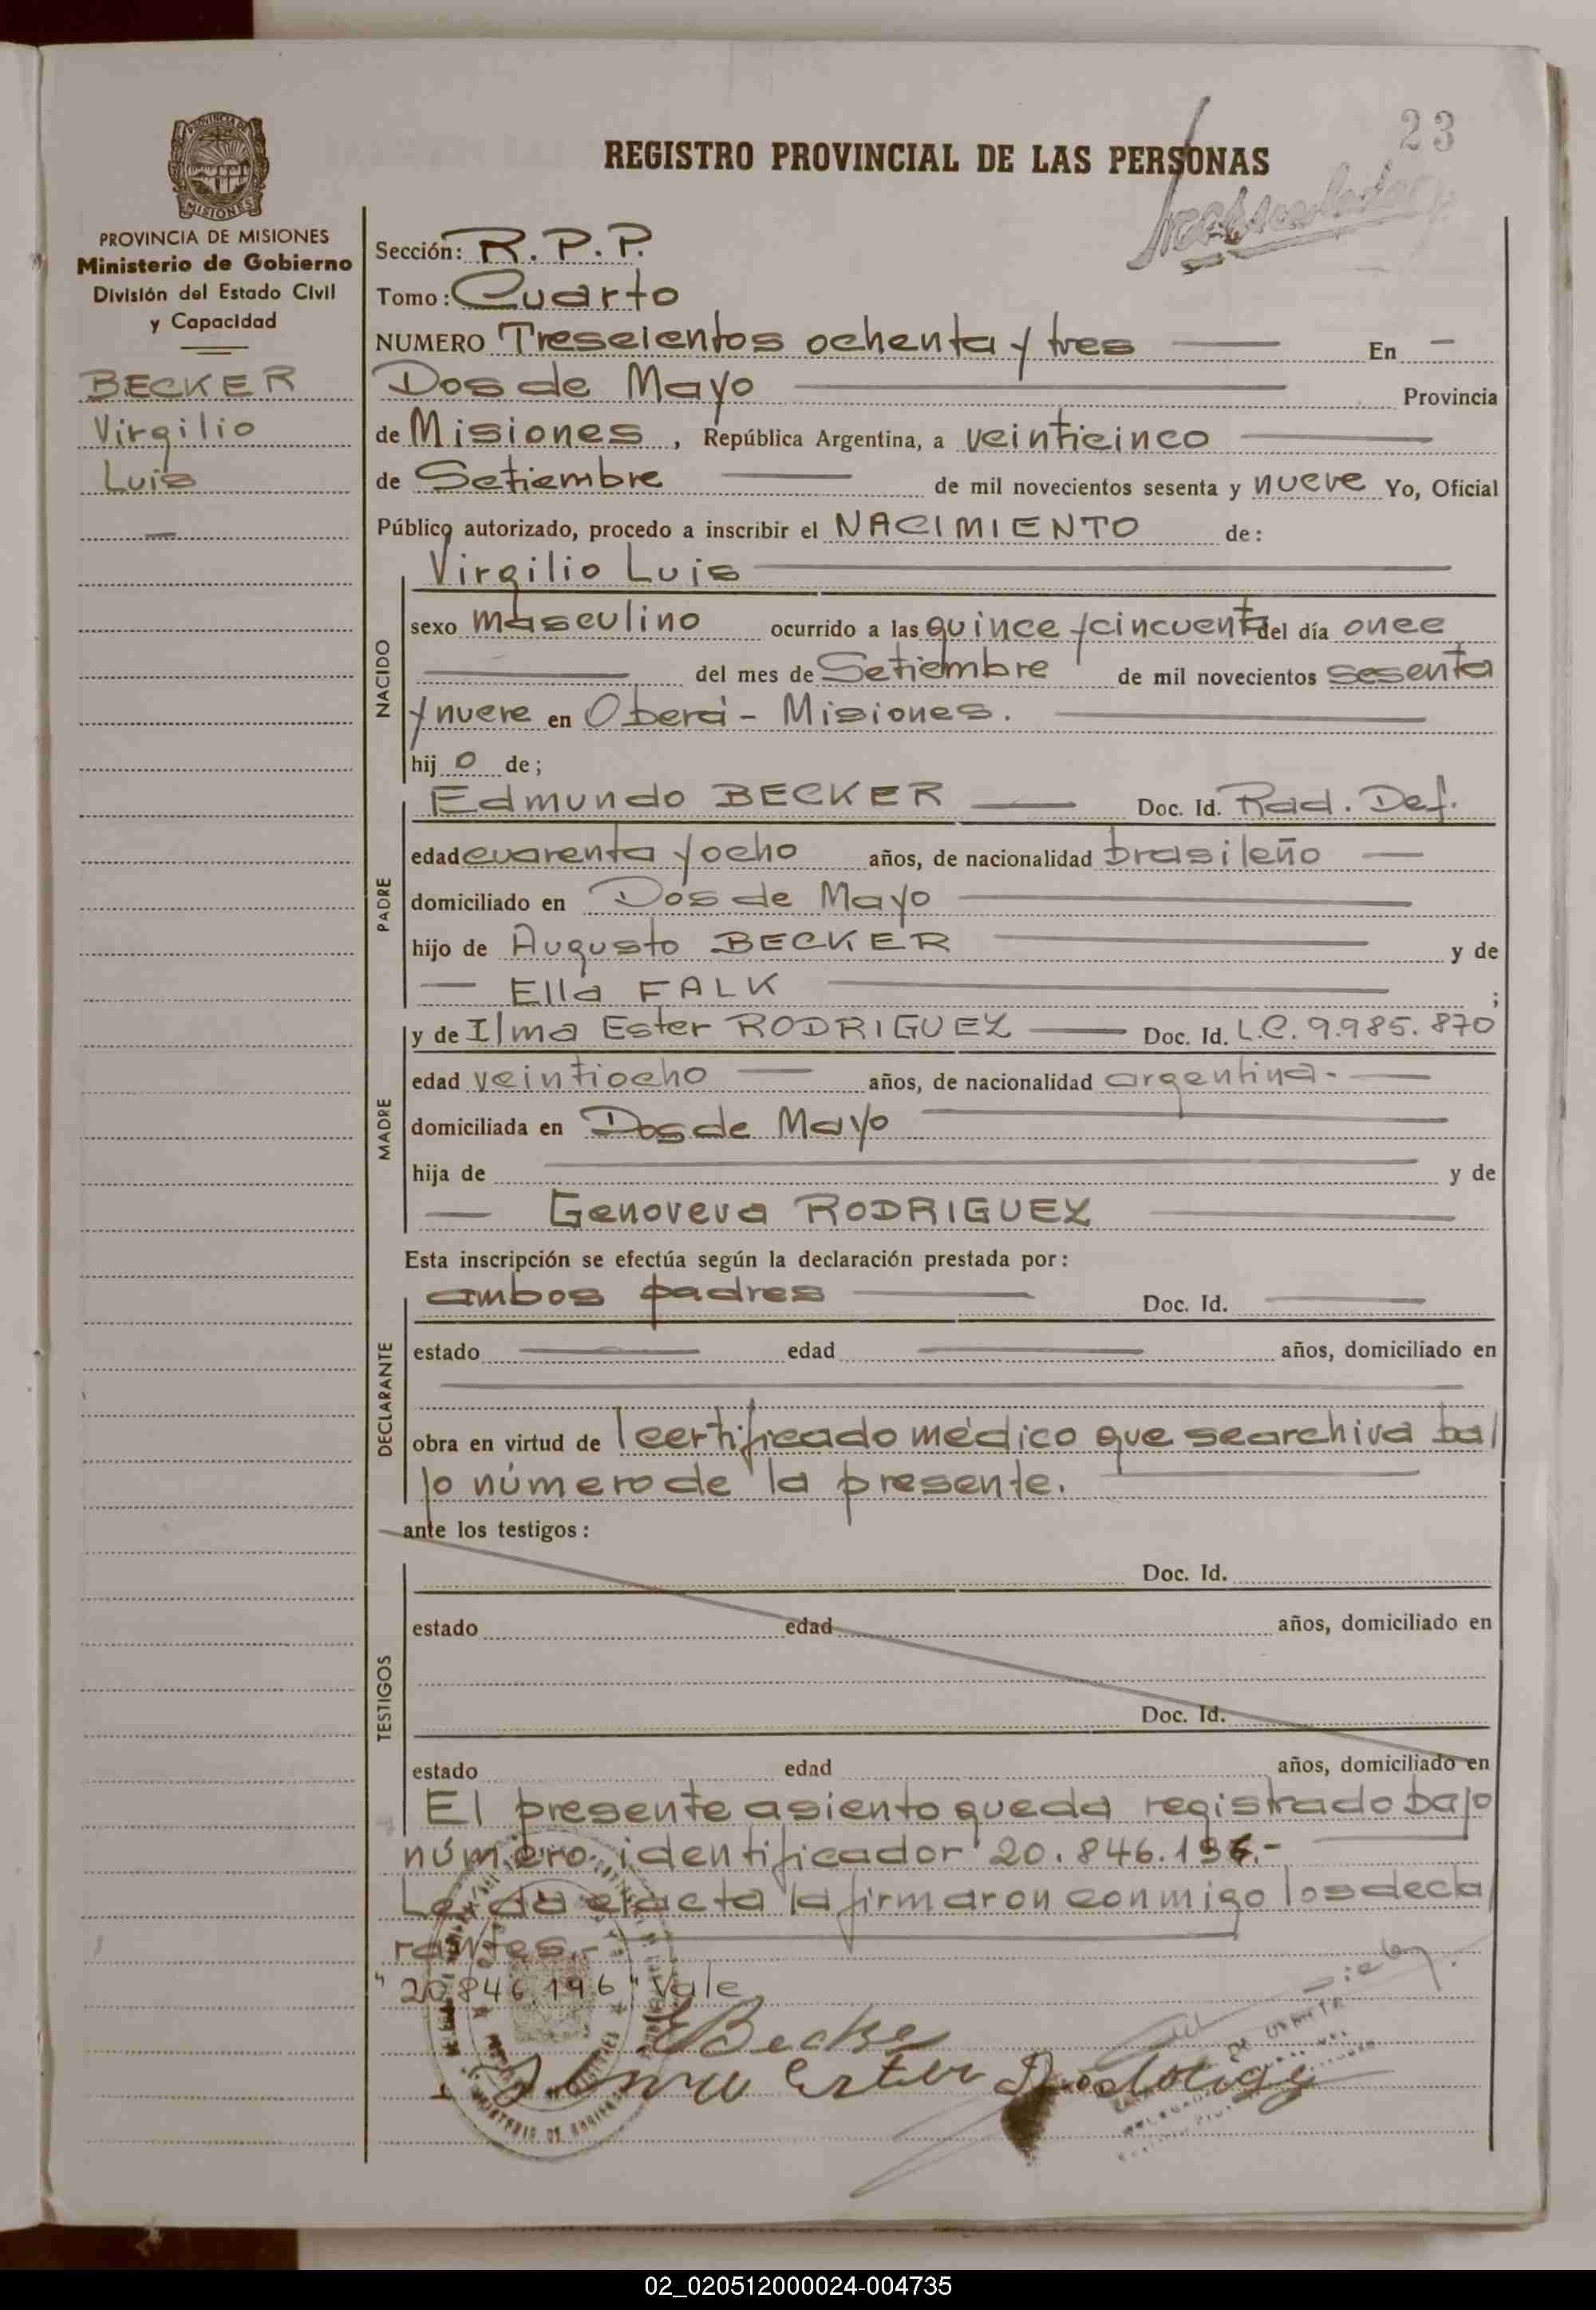 23
REGISTRO PROVINCIAL DE LAS PERSONAS
PROVINCIA DE MISIONES
Ministerio de Gobierno
División del Estado Civil
y Capacidad
BECKER
Virgilio
Luis
Sección: R. P. P.
Tomo: Cuarto
NUMERO Trescientos ochenta y tres En
Dos de Mayo Provincia
de Misiones, República Argentina, a veinticinco
de Setiembre de mil novecientos sesenta y nueve Yo, Oficial
Público autorizado, procedo a inscribir el NACIMIENTO de:
NACIDO
Virgilio Luis
sexo masculino ocurrido a las quince y cincuenta del día once
del mes de Setiembre de mil novecientos sesenta
y nueve en Oberá - Misiones.
hijo de;
PADRE
Edmundo BECKER Doc. Id. Rad. Def.
edad cuarenta y ocho años, de nacionalidad brasileño
domiciliado en Dos de Mayo
hijo de Augusto BECKER y de
Ella FALK ;
MADRE
y de Ilma Ester RODRIGUEZ Doc. Id. L.C. 9.985.870
edad veintiocho años, de nacionalidad argentina.
domiciliada en Dos de Mayo
hija de y de
Genoveva RODRIGUEZ
Esta inscripción se efectúa según la declaración prestada por:
DECLARANTE
ambos padres Doc. Id.
estado edad años, domiciliado en
obra en virtud de l certificado médico que se archiva ba
jo número de la presente.
ante los testigos:
TESTIGOS
Doc. Id.
estado edad años, domiciliado en
Doc. Id.
estado edad años, domiciliado en
El presente asiento queda registrado bajo
número identificador 20.846.196.-
Leída el acta la firmaron conmigo los decla
rantes.-
"20.846.196" Vale
E Becker
Ilma Ester Rodriguez
02_020512000024-004735